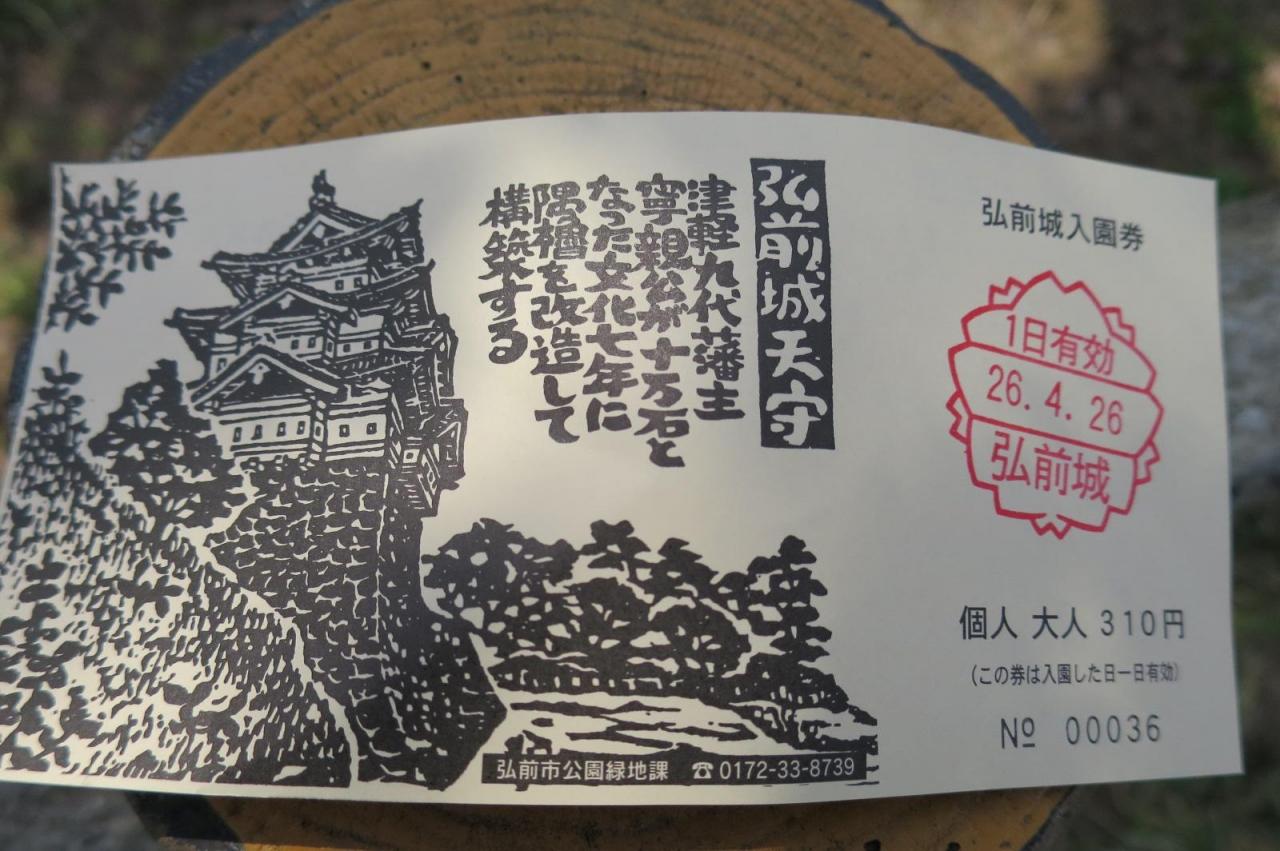 弘前城天守
津軽九代藩主
寧親公が十万石と
なった文化七年に
隅櫓を改造して
構築する
弘前市公園緑地課 ☎0172-33-8739
弘前城入園券
1日有効
26.4.26
弘前城
個人 大人 310円
(この券は入園した日一日有効)
№ 00036